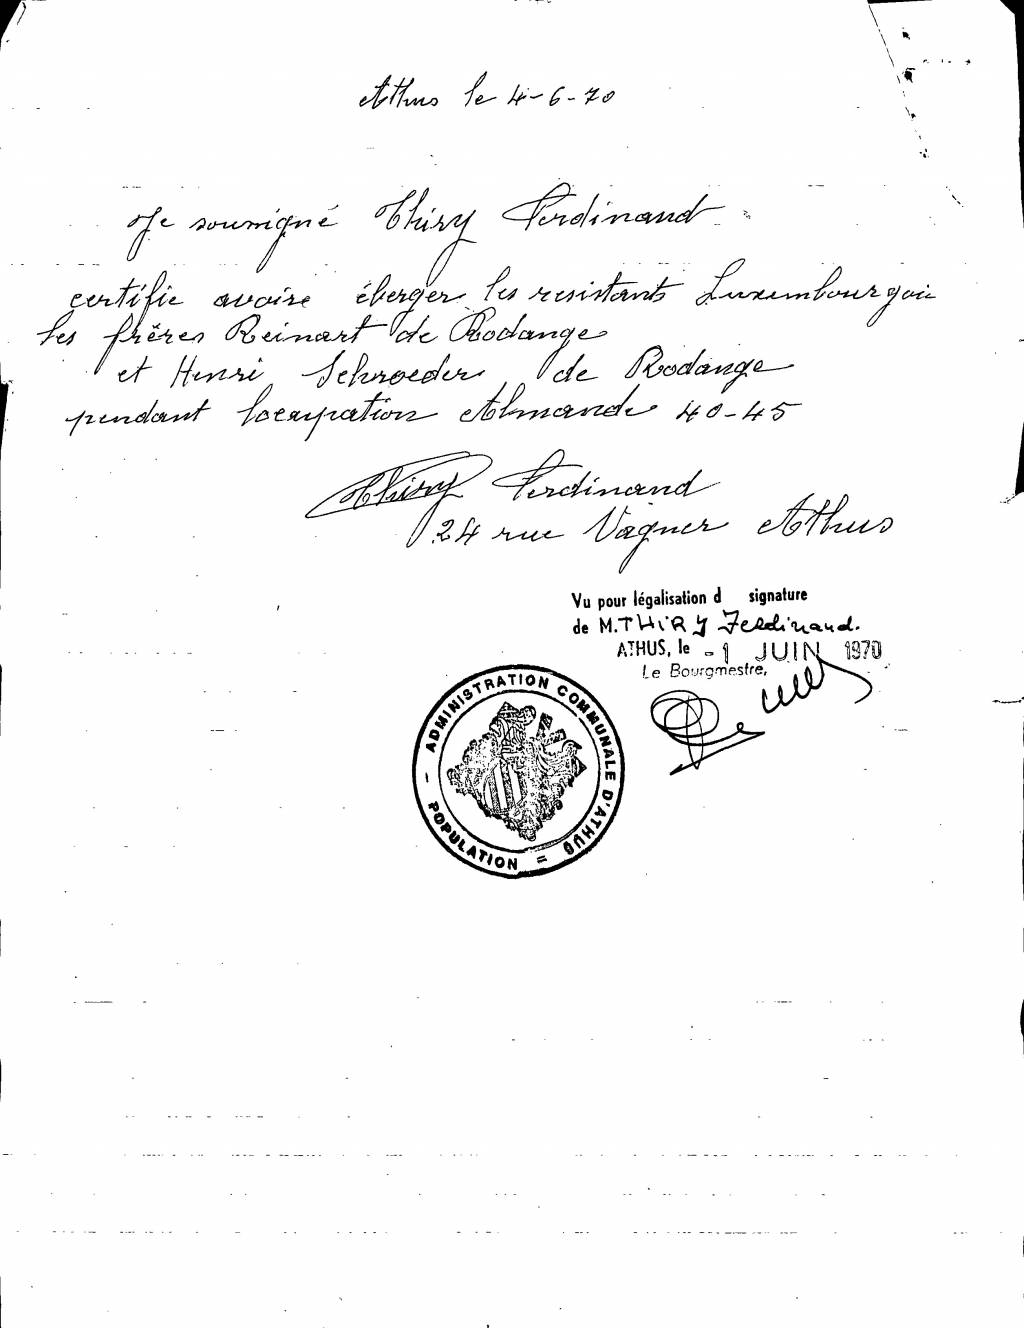 Athus le 4-6-70
Je soussigné Thiry Ferdinand
certifie avoire éberger les resistants Luxembourgois
les frères Reinart de Rodange
et Henri Schroeder de Rodange
pendant locaupation Almande 40-45
Thiry Ferdinand
24 rue Vagner Athus
Vu pour légalisation d signature
de M. THIRY Ferdinand.
ATHUS, le - 1 JUIN 1970
Le Bourgmestre,
- ADMINISTRATION COMMUNALE D'ATHUS = POPULATION